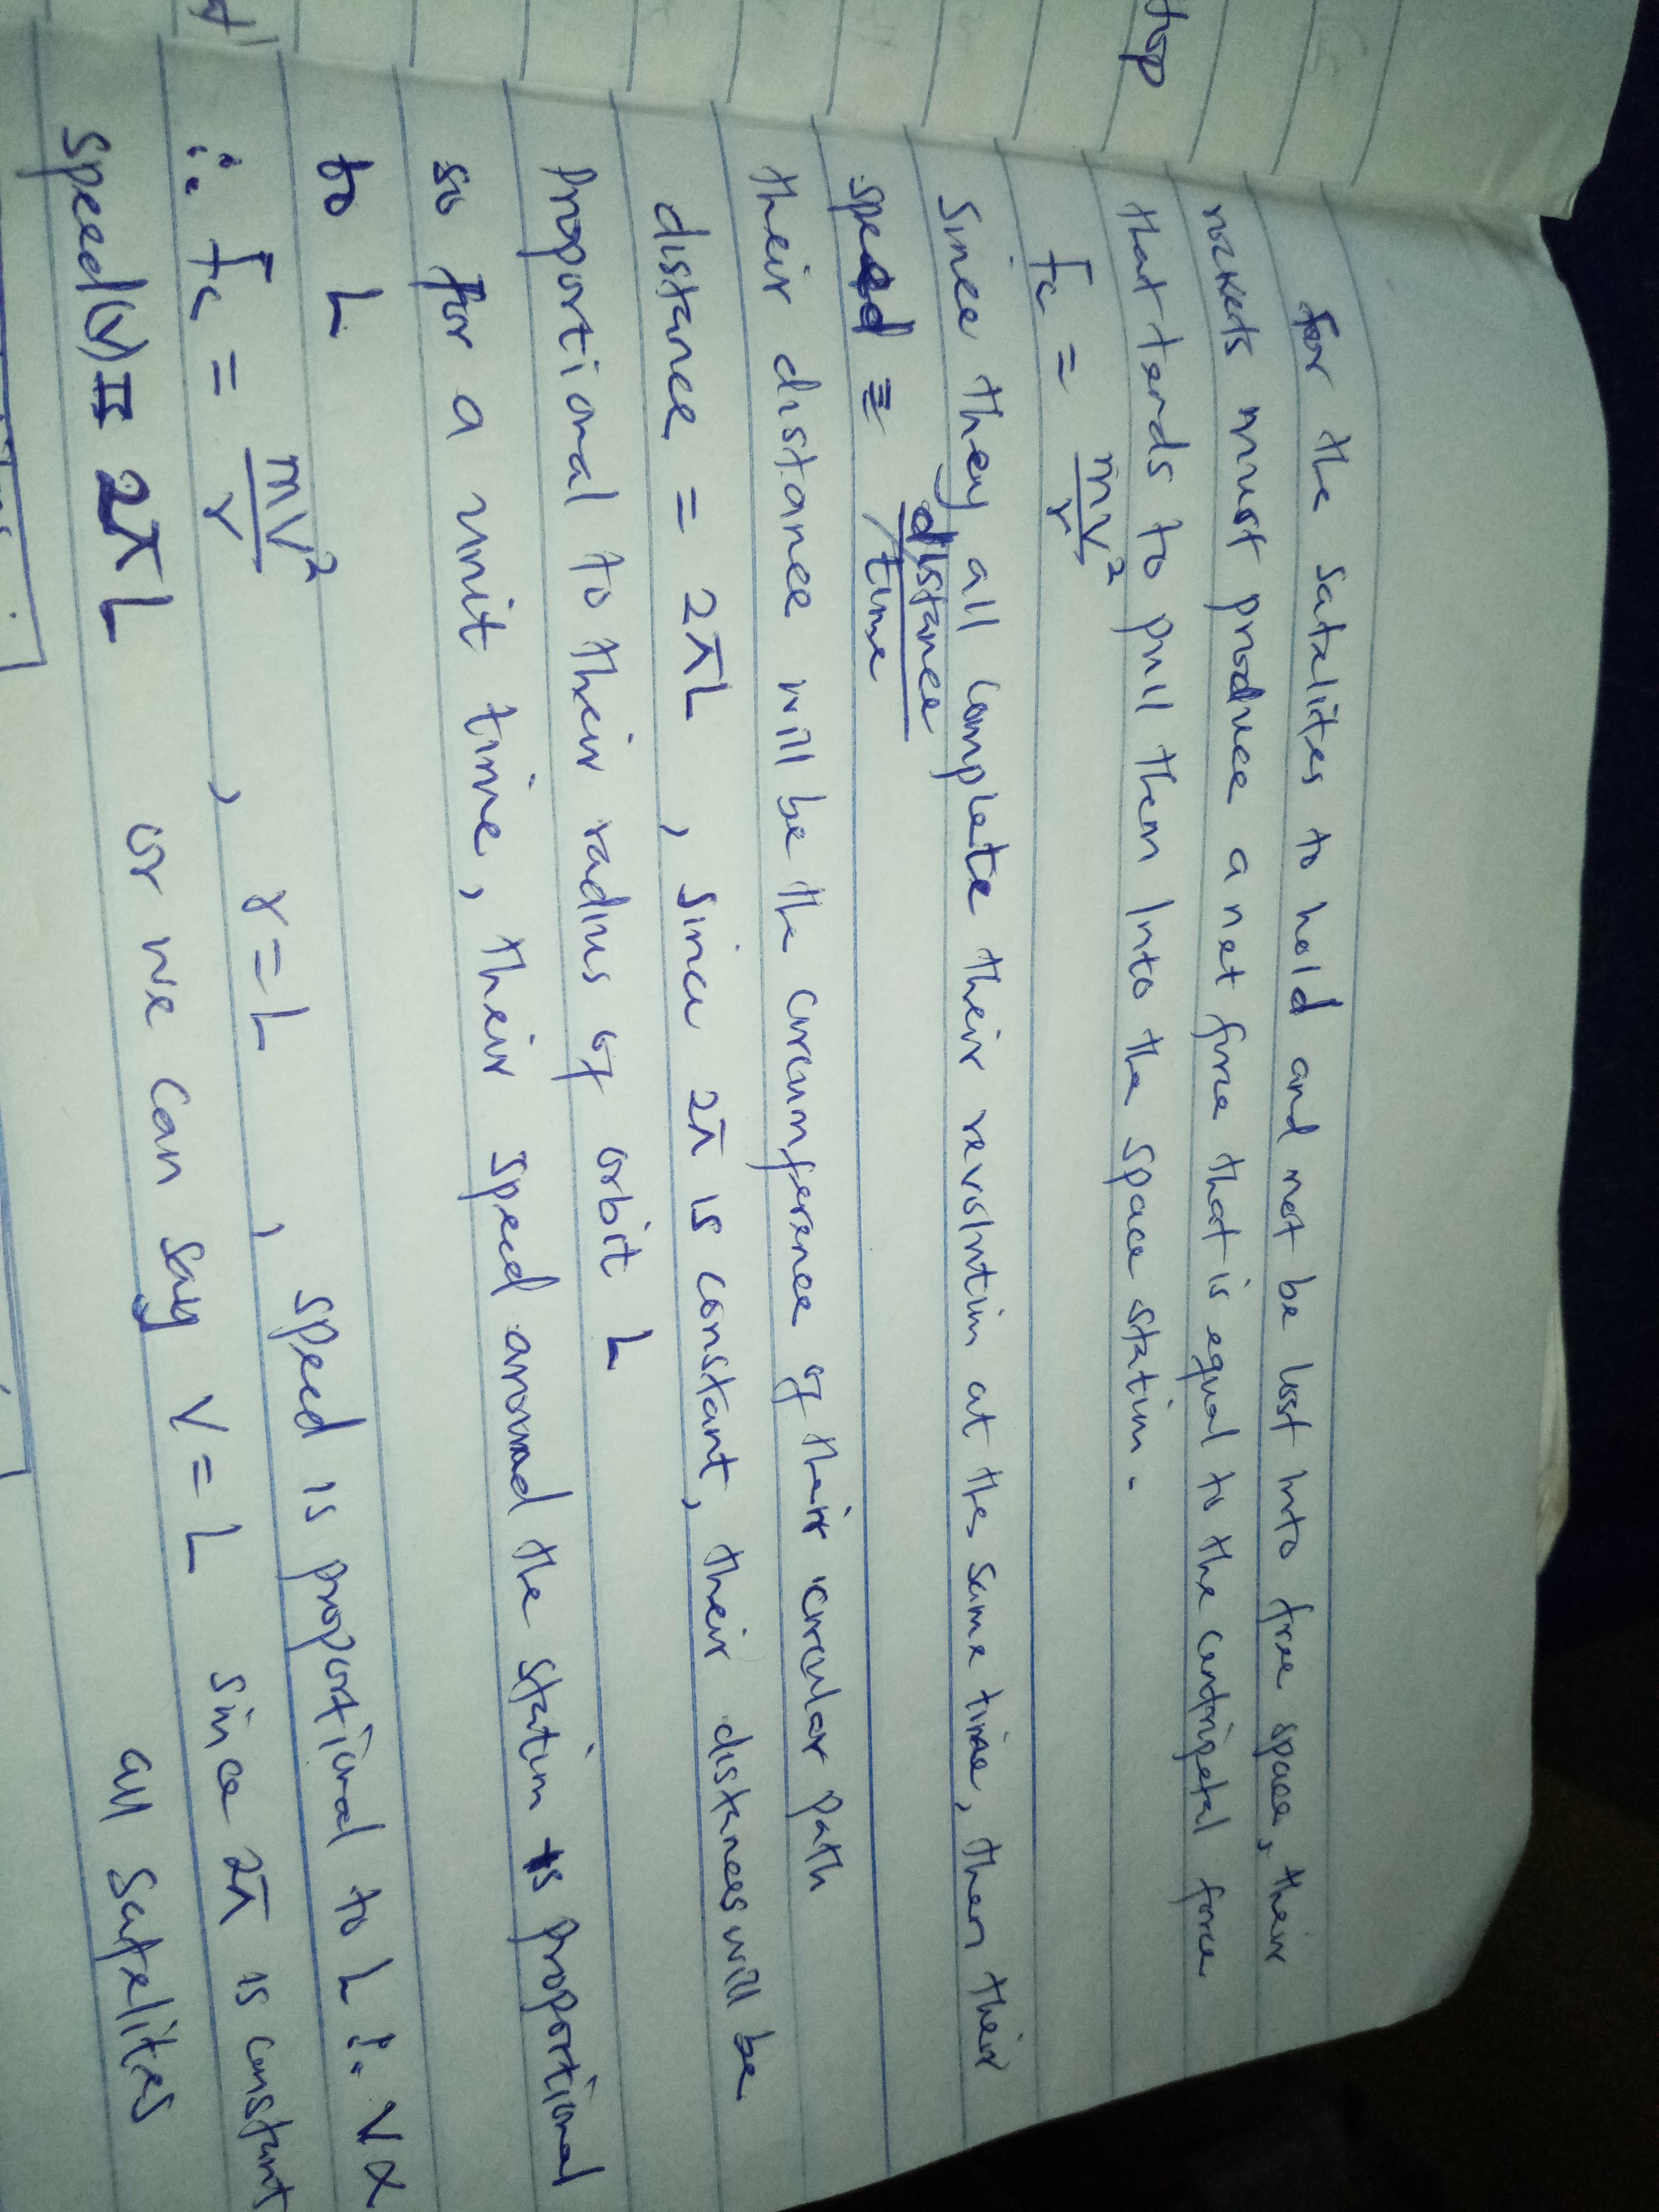 top
For the satelites to hold and not be lost into free space, their
rockets must produce a net force that is equal to the centripetal force
that tends to pull them Into the space station.
Fc = mv²/r
Since they all complete their revolution at the same time, then their
speed = distance/time
their distance will be the circumference of their circular path
distance = 2πL , since 2π is constant, their distances will be
proportional to their radius of orbit L
so for a unit time, their speed around the station is proportional
to L
∴ Fc = mv²/r , r = L , speed is proportional to L ∴ V α
speed(v) = 2πL or we can say V = L since 2π is constant
all satelites